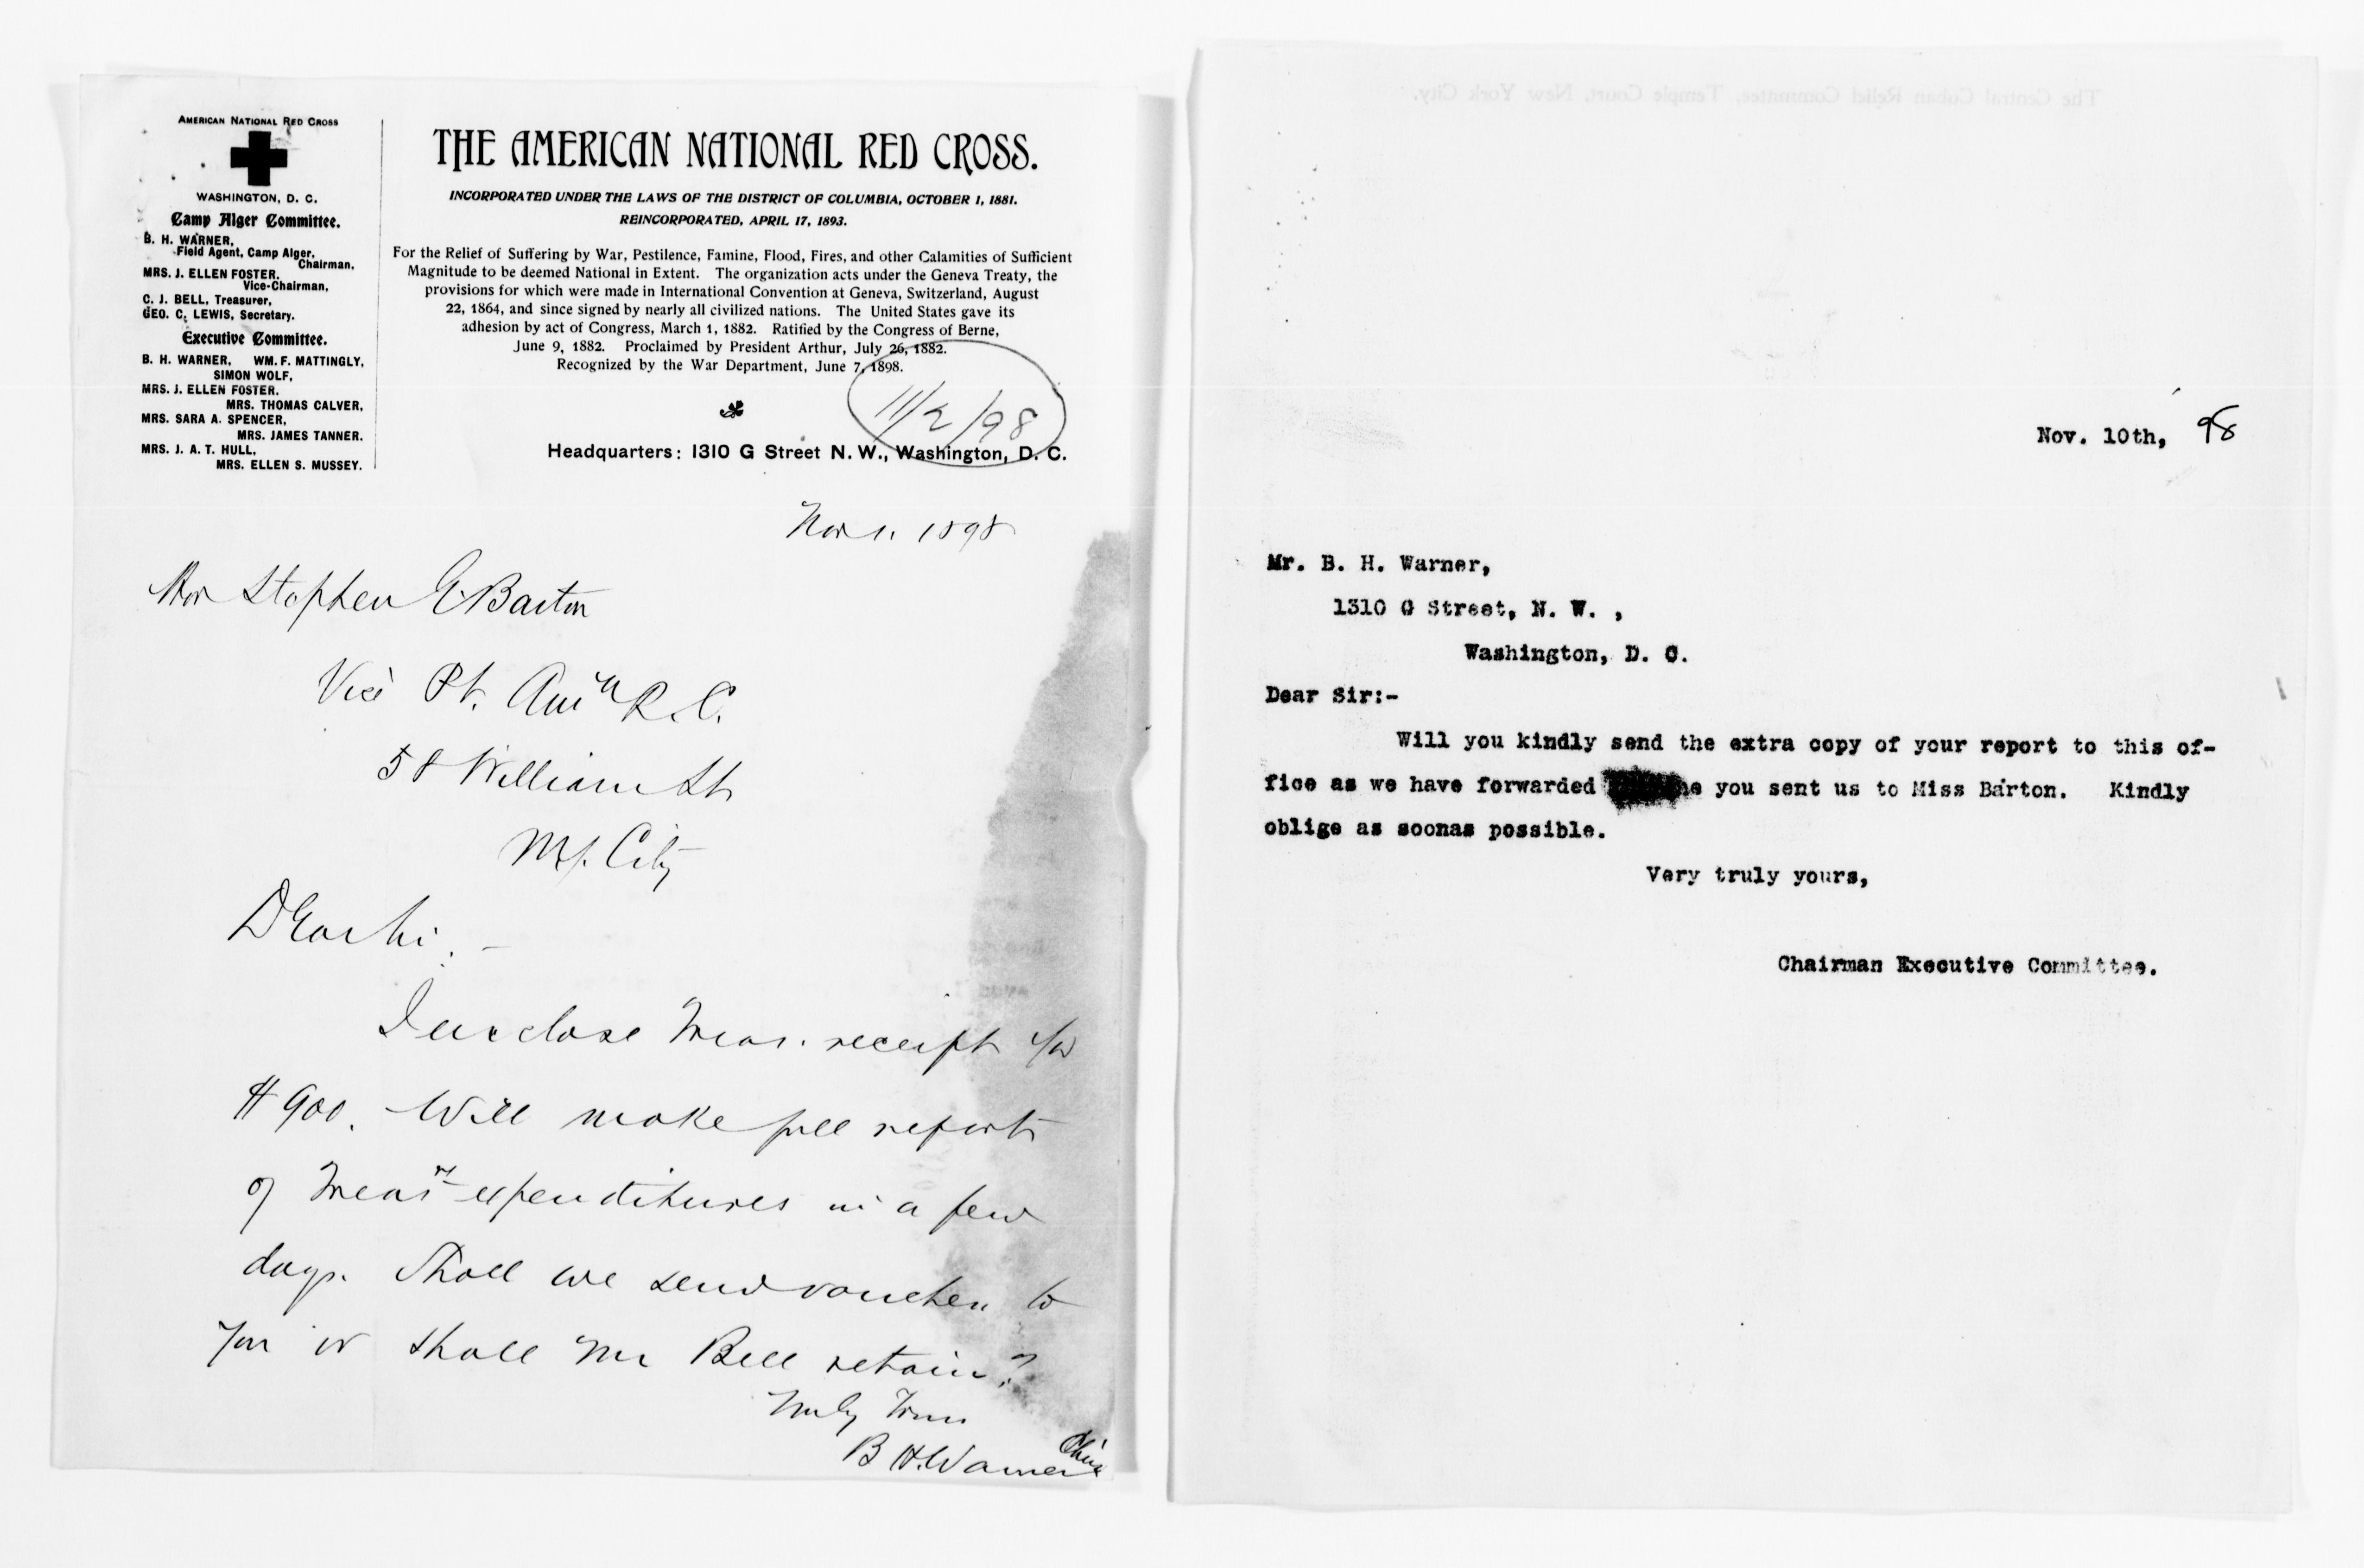 AMERICAN NATIONAL RED CROSS
WASHINGTON, D. C.
Camp Alger Committee.
B. H. WARNER,
Field Agent, Camp Alger,
Chairman,
MRS. J. ELLEN FOSTER.
Vice-Chairman,
C. J. BELL, Treasurer,
GEO. C. LEWIS, Secretary.
Executive Committee.
B. H. WARNER, WM. F. MATTINGLY,
SIMON WOLF,
MRS. J. ELLEN FOSTER.
MRS. THOMAS CALVER,
MRS. SARA A. SPENCER,
MRS. JAMES TANNER.
MRS. J. A. T. HULL,
MRS. ELLEN S. MUSSEY.
THE AMERICAN NATIONAL RED CROSS.
INCORPORATED UNDER THE LAWS OF THE DISTRICT OF COLUMBIA, OCTOBER 1, 1881.
REINCORPORATED, APRIL 17, 1893.
For the Relief of Suffering by War, Pestilence, Famine, Flood, Fires, and other Calamities of Sufficient
Magnitude to be deemed National in Extent. The organization acts under the Geneva Treaty, the
provisions for which were made in International Convention at Geneva, Switzerland, August
22, 1864, and since signed by nearly all civilized nations. The United States gave its
adhesion by act of Congress, March 1, 1882. Ratified by the Congress of Berne,
June 9, 1882. Proclaimed by President Arthur, July 26, 1882.
Recognized by the War Department, June 7, 1898.
11/2/98
Headquarters: 1310 G Street N. W., Washington, D. C.
Nov 1. 1898
Hon Stephen E Barton
Vice Pt. Am'n R. C.
58 William St
N.Y. City
Dear Sir. -
I enclose Treas. receipt for
$900. Will make full report
of Treas'r expenditures in a few
days. Shall we send voucher to
you or shall Mr Bell retain?
Truly Yours
B H. Warner
The Central Cuban Relief Committee, Temple Court, New York City.
Nov. 10th, 98
Mr. B. H. Warner,
1310 G Street, N. W. ,
Washington, D. C.
Dear Sir:-
Will you kindly send the extra copy of your report to this of-
fice as we have forwarded you sent us to Miss Barton. Kindly
oblige as soonas possible.
Very truly yours,
Chairman Executive Committee.